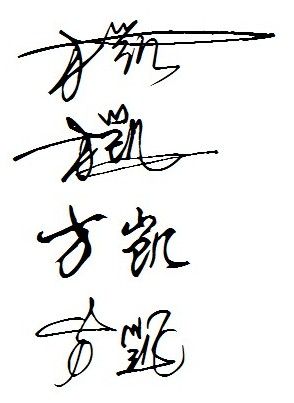 方凯
方凯
方凯
方凯